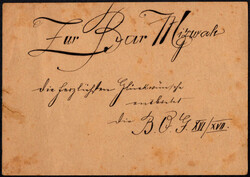 Zur Bar Mizwah
die herzlichsten Glückwünsche
entbietet
die B.O.G. XII/XVII.